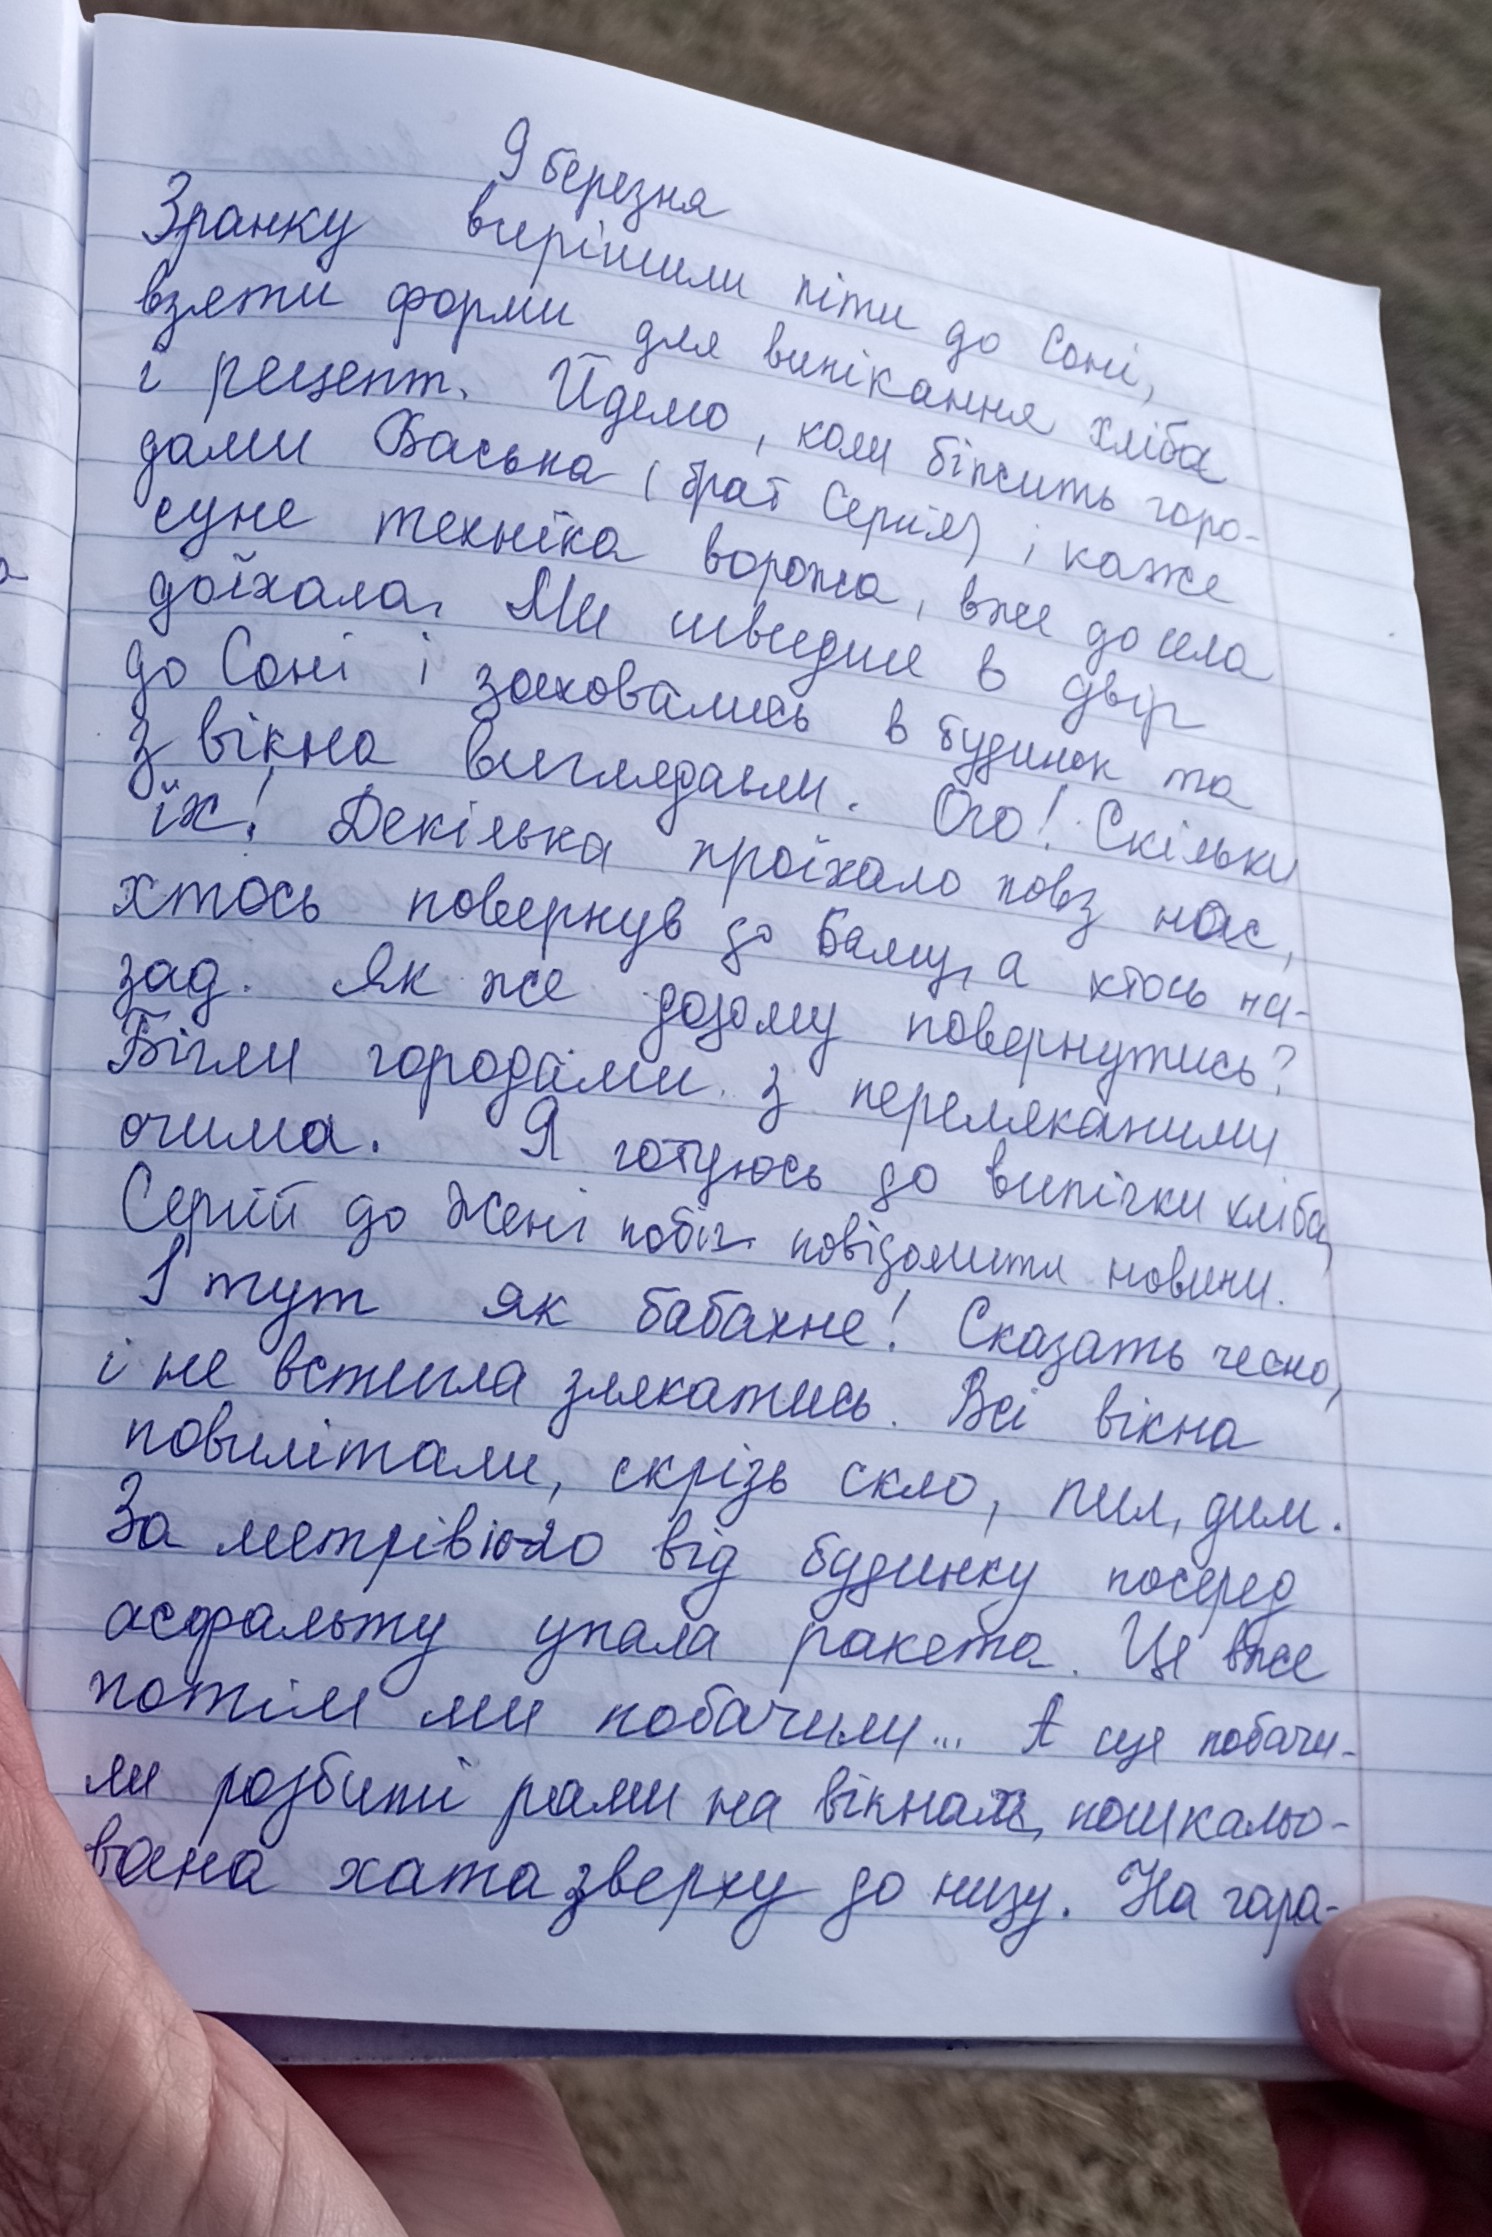 9 березня
Зранку вирішили піти до Соні,
взяти форми для випікання хліба
і рецепт. Йдемо, коли біжить горо-
дами Васька (брат Сергія) і каже
суне техніка ворожа, вже до села
доїхала. Ми швидше в двір
до Соні і заховались в будинок та
з вікна виглядали. Ого! Скільки
їх! Декілька проїхало повз нас,
хтось повернув до Баму, а хтось на-
зад. Як же додому повернутись?
Бігли городами з переляканими
очима. Я готуюсь до випічки хліба,
Сергій до Жені побіг повідомити новини.
І тут як бабахне! Сказать чесно,
і не встигла злякатись. Всі вікна
повилітали, скрізь скло, пил, дим.
За метрів 20 від будинку посеред
асфальту упала ракета. Це вже
потім ми побачили... А ще побачи-
ли розбиті рами на вікнах, пошкальо-
вана хата зверху до низу. На гара-